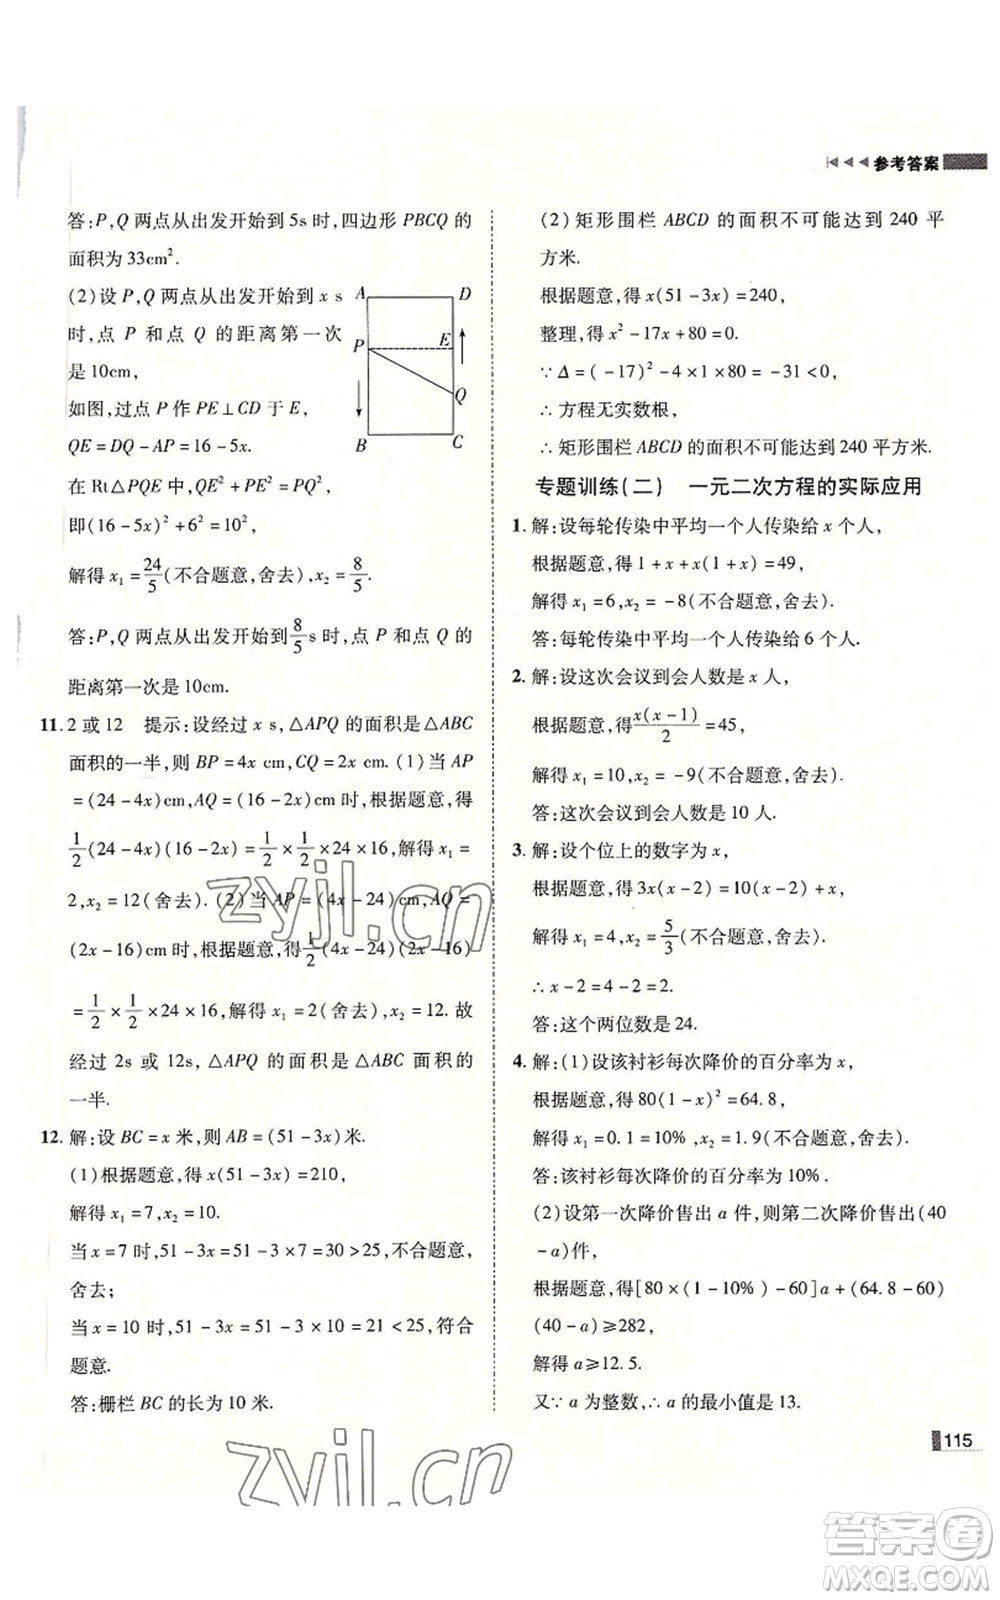 参考答案
答:P,Q 两点从出发开始到 5s 时,四边形 PBCQ 的
面积为 33cm².
(2)设 P,Q 两点从出发开始到 x s
时,点 P 和点 Q 的距离第一次
是 10cm,
如图,过点 P 作 PE⊥CD 于 E,
QE=DQ-AP=16-5x.
在 Rt△PQE 中,QE²+PE²=PQ²,
即(16-5x)²+6²=10²,
解得 x₁=24/5(不合题意,舍去),x₂=8/5.
答:P,Q 两点从出发开始到 8/5 s 时,点 P 和点 Q 的
距离第一次是 10cm.
A
D
P
E
Q
B
C
11. 2 或 12 提示:设经过 x s,△APQ 的面积是△ABC
面积的一半,则 BP=4x cm,CQ=2x cm.(1)当 AP
=(24-4x)cm,AQ=(16-2x)cm 时,根据题意,得
1/2(24-4x)(16-2x)=1/2×1/2×24×16,解得 x₁=
2,x₂=12(舍去).(2)当 AP=(4x-24)cm,AQ=
(2x-16)cm 时,根据题意,得 1/2(4x-24)(2x-16)
=1/2×1/2×24×16,解得 x₁=2(舍去),x₂=12.故
经过 2s 或 12s,△APQ 的面积是△ABC 面积的
一半.
12. 解:设 BC=x 米,则 AB=(51-3x)米.
(1)根据题意,得 x(51-3x)=210,
解得 x₁=7,x₂=10.
当 x=7 时,51-3x=51-3×7=30>25,不合题意,
舍去;
当 x=10 时,51-3x=51-3×10=21<25,符合
题意.
答:栅栏 BC 的长为 10 米.
(2)矩形围栏 ABCD 的面积不可能达到 240 平
方米.
根据题意,得 x(51-3x)=240,
整理,得 x²-17x+80=0.
∵Δ=(-17)²-4×1×80=-31<0,
∴方程无实数根,
∴矩形围栏 ABCD 的面积不可能达到 240 平方米.
专题训练(二) 一元二次方程的实际应用
1. 解:设每轮传染中平均一个人传染给 x 个人,
根据题意,得 1+x+x(1+x)=49,
解得 x₁=6,x₂=-8(不合题意,舍去).
答:每轮传染中平均一个人传染给 6 个人.
2. 解:设这次会议到会人数是 x 人,
根据题意,得 x(x-1)/2=45,
解得 x₁=10,x₂=-9(不合题意,舍去).
答:这次会议到会人数是 10 人.
3. 解:设个位上的数字为 x,
根据题意,得 3x(x-2)=10(x-2)+x,
解得 x₁=4,x₂=5/3(不合题意,舍去).
∴x-2=4-2=2.
答:这个两位数是 24.
4. 解:(1)设该衬衫每次降价的百分率为 x,
根据题意,得 80(1-x)²=64.8,
解得 x₁=0.1=10%,x₂=1.9(不合题意,舍去).
答:该衬衫每次降价的百分率为 10%.
(2)设第一次降价售出 a 件,则第二次降价售出(40
-a)件,
根据题意,得[80×(1-10%)-60]a+(64.8-60)
(40-a)≥282,
解得 a≥12.5.
又∵a 为整数,∴a 的最小值是 13.
115
zyjl.cn
zyjl.cn
答案卷
MXQE.COM